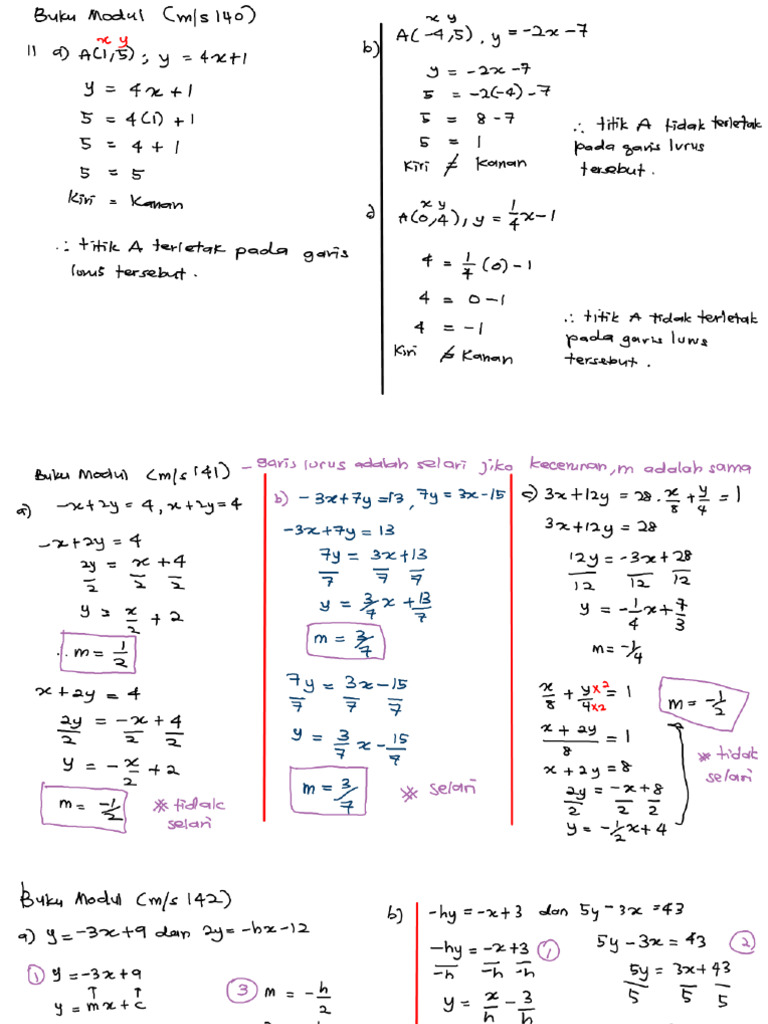 Buku Modul (m/s 140)
11 a) A(1,5) ; y = 4x+1
x y
y = 4x+1
5 = 4(1) + 1
5 = 4 + 1
5 = 5
Kiri = Kanan
∴ titik A terletak pada garis
lurus tersebut.
b) A(-4,5), y = -2x-7
x y
y = -2x-7
5 = -2(-4)-7
5 = 8-7
5 = 1
Kiri ≠ Kanan
∴ titik A tidak terletak
pada garis lurus
tersebut.
A(0,4), y = 1/4x-1
x y
4 = 1/4 (0) -1
4 = 0-1
4 = -1
Kiri ≠ Kanan
∴ titik A tidak terletak
pada garis lurus
tersebut.
Buku Modul (m/s 141) - garis lurus adalah selari jika kecerunan, m adalah sama
a) -x+2y = 4, x+2y=4
-x+2y = 4
2y/2 = x/2 + 4/2
y = x/2 + 2
∴ m = 1/2
x + 2y = 4
2y/2 = -x/2 + 4/2
y = -x/2 + 2
m = -1/2
* tidak
selari
b) -3x+7y=13, 7y = 3x-15
-3x+7y = 13
7y/7 = 3x/7 + 13/7
y = 3/7x + 13/7
m = 3/7
7y/7 = 3x/7 - 15/7
y = 3/7x - 15/7
m = 3/7
* selari
c) 3x+12y = 28. x/8 + y/4 = 1
3x+12y = 28
12y/12 = -3x/12 + 28/12
y = -1/4x + 7/3
m = -1/4
x/8 + y×2/4×2 = 1
x + 2y/8 = 1
x + 2y = 8
2y/2 = -x/2 + 8/2
y = -1/2x + 4
m = -1/2
* tidak
selari
Buku Modul (m/s 142)
a) y = -3x+9 dan 2y = -hx-12
① y = -3x+9
y = mx + c
③ m = -h/2
b) -hy = -x+3 dan 5y-3x=43
-hy/-h = -x/-h + 3/-h ①
y = x/h - 3/h
5y-3x = 43 ②
5y/5 = 3x/5 + 43/5